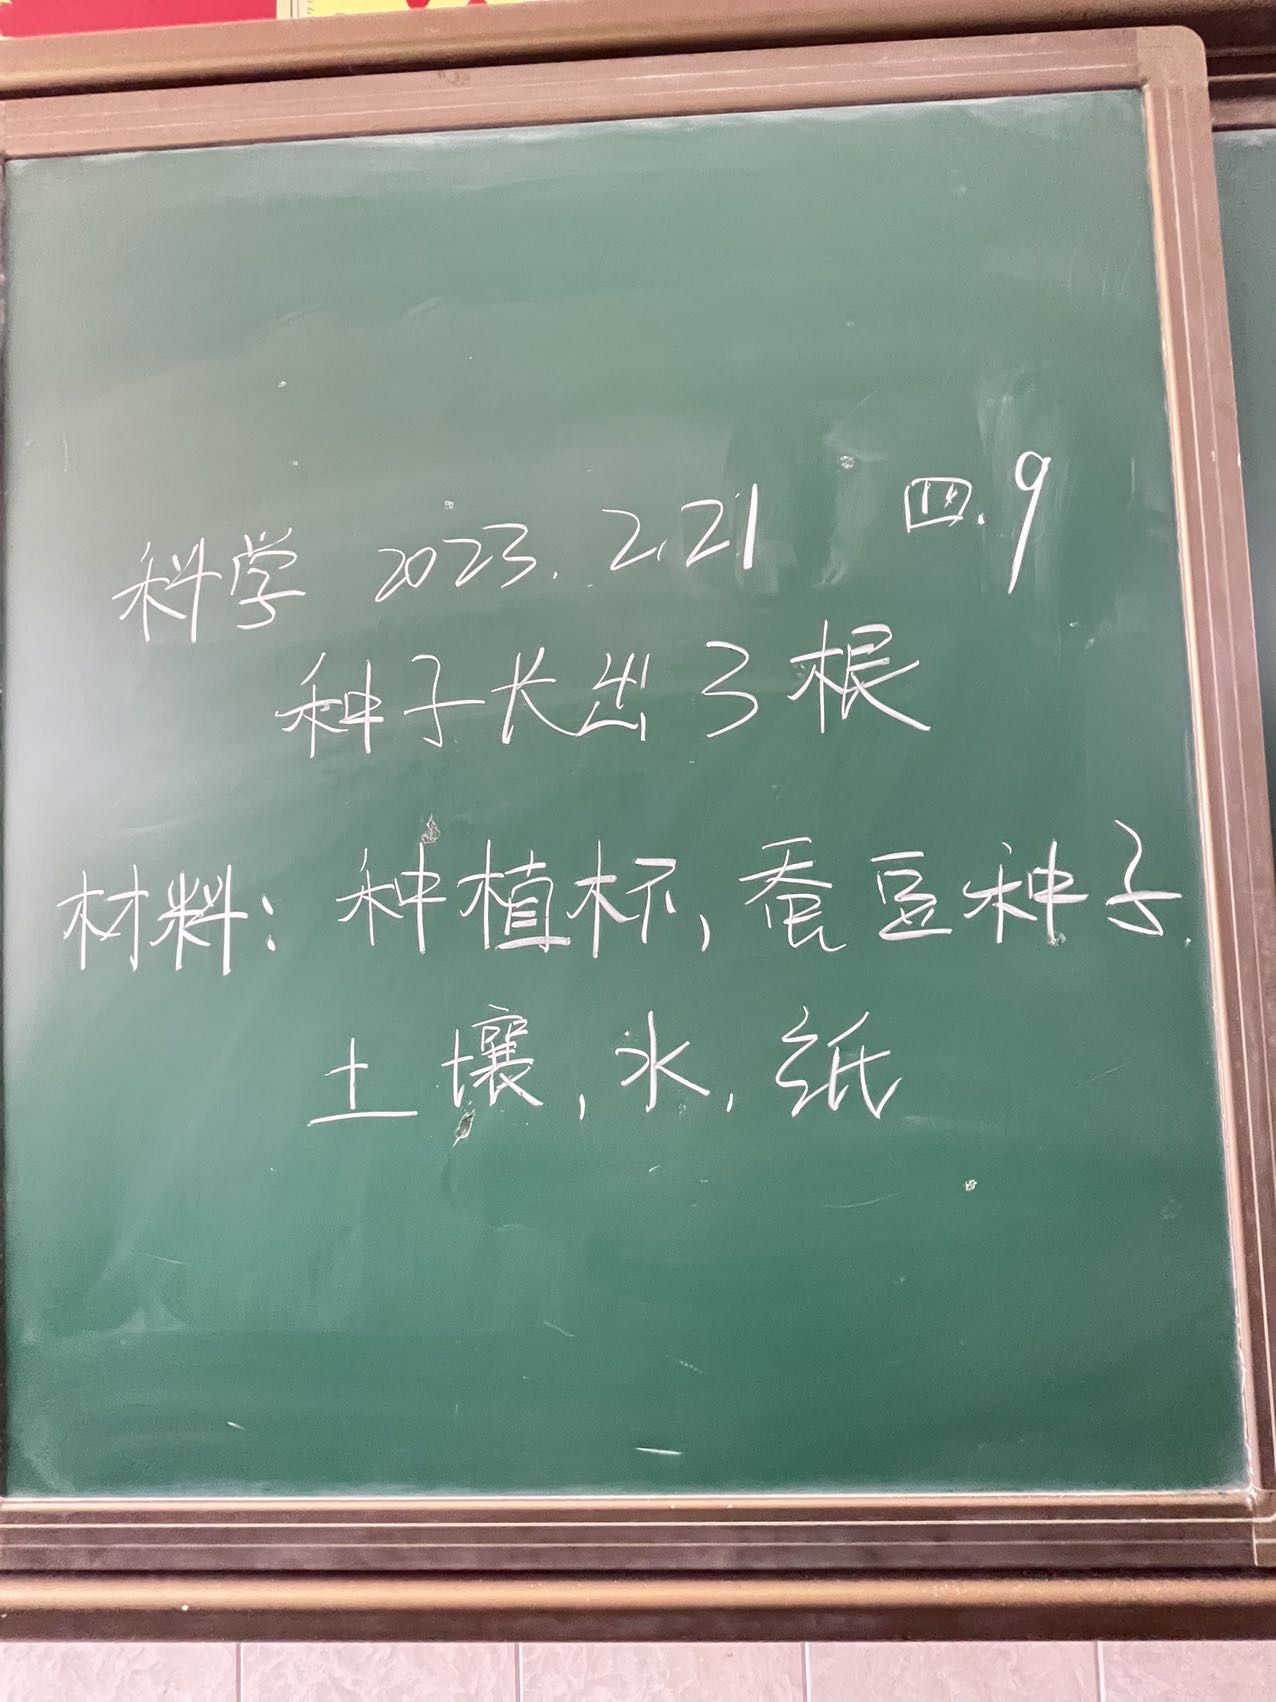 科学 2023.2.21 四.9
种子长出了根
材料：种植杯，蚕豆种子，
土壤，水，纸